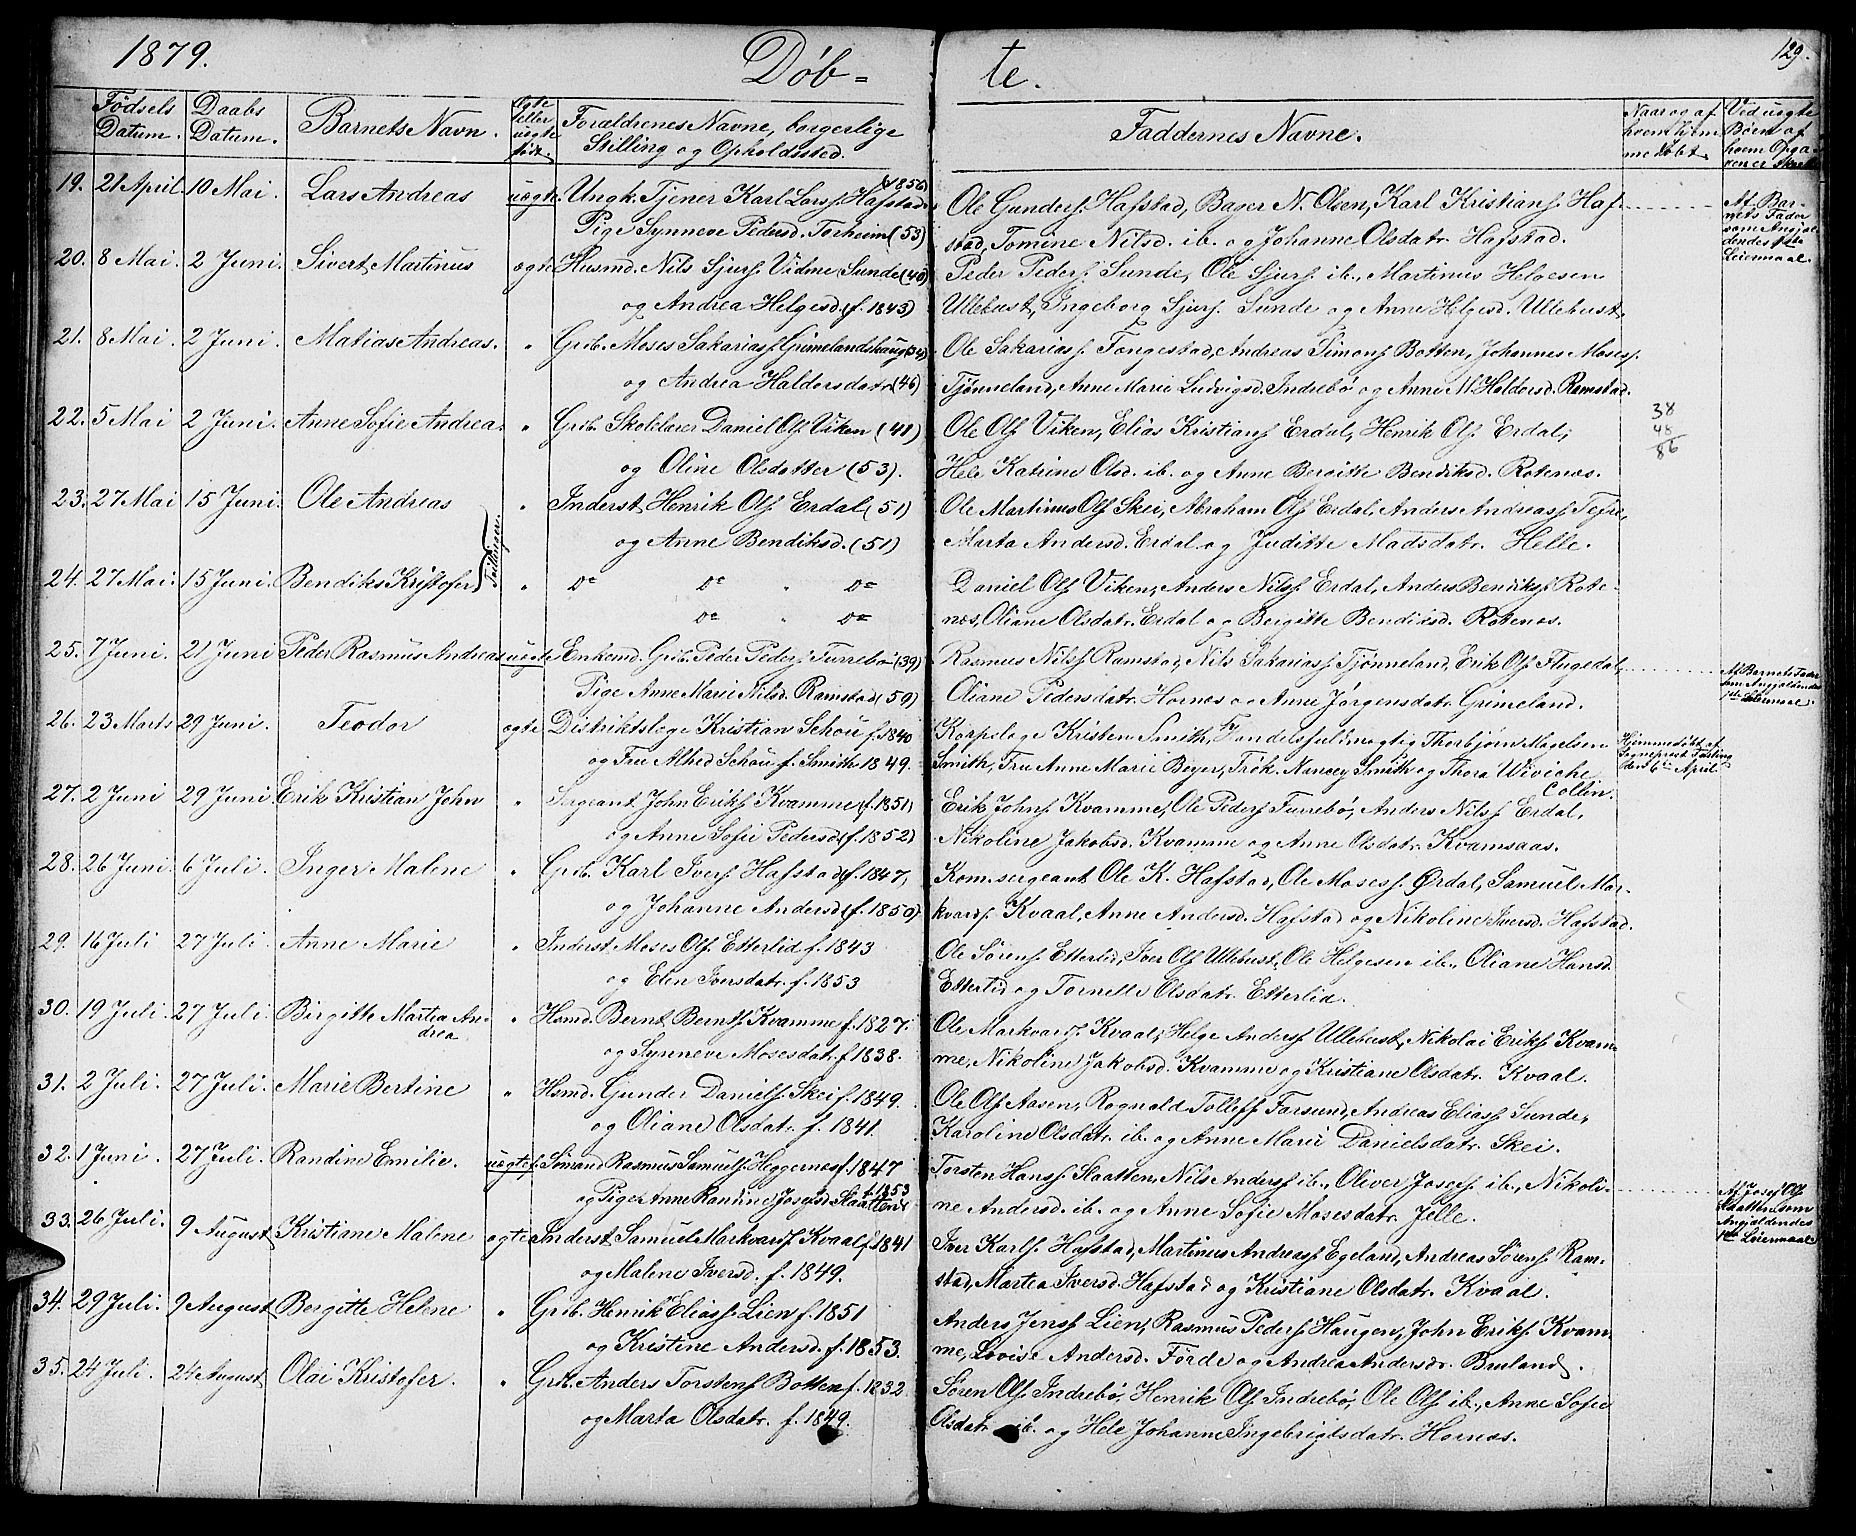 1879. Døb= te. 129.
Fødsels Datum. Daabs Datum. Barnets Navn. Ægte eller uægte født. Forældrenes Navne, borgerlige Stilling og Opholdssted. Faddernes Navne. Naar og af hvem hjemmedøbt. Ved uægte Børn af hvem Opgaven er
19. 21 April. 10 Mai. Lars Andreas uægte. Ungk. Tjener Karl Larss. Hafstad (1856) Ole Gunders. Hafstad, Bager N. Olsen, Karl Kristians. Haf- Af Bar-
Pige Synneve Pedersd. Torheim (53) stad, Tomine Nilsd. ib. og Johanne Olsdatr. Hafstad. nets Fader som Angjældendes 1ste Leiermaal.
20. 8 Mai. 2 Juni. Sivert Martinus ægte Husmd. Nils Sjurs. Vidme Sunde (40) Peder Peders. Sunde, Ole Sjurs. ib., Martinus Helgesen
og Andrea Helgesd. (f. 1843) Ullebust, Ingeborg Sjurs. Sunde og Anne Helgesd. Ullebust.
21. 8 Mai. 2 Juni. Matias Andreas. " Grdb. Moses Sakariass. Grimelandshaug (34) Ole Sakariass. Tongestad, Andreas Simons. Botten, Johannes Moses.
og Andrea Haldorsdatr (46) Tjønneland, Anne Marie Ludvigsd. Indrebø og Anne M. Haldorsd. Ramstad.
22. 5 Mai 2 Juni. Anne Sofie Andrea. " Grdb. Skolelærer Daniel Ols. Viken (48) Ole Ols. Viken, Elias Kristians. Erdal, Henrik Ols. Erdal, 38
48
og Oline Olsdatter (53). Hele Katrine Olsd. ib. og Anne Bergitte Bendiksd. Rotenæs. 86
23. 27 Mai 15 Juni. Ole Andreas " Inderst Henrik Ols. Erdal (51) Ole Martinus Ols. Skei, Abraham Ols. Erdal, Anders Andreass. Tefre,
Tvillinger. og Anne Bendiksd. (51) Marta Andersd. Erdal og Juditte Madsdatr. Helle.
24. 27 Mai. 15 Juni. Bendiks Kristofer " Do Do " Do Daniel Ols. Viken, Anders Nilss. Erdal, Anders Bendikss. Rote-
Do " Do næs, Oliane Olsdatr. Erdal og Bergitte Bendiksd. Rotenæs.
25. 7 Juni. 21 Juni Peder Rasmus Andreas uægte Enkemd. Grdb. Peder Peders. Furrebø (39) Rasmus Nilss. Ramstad, Nils Sakariass. Tjønneland, Erik Ols. Flugedal, Af Barnets Fader
Pige Anne Marie Nilsd. Ramstad (59) Oliane Pedersdatr. Hornæs og Anne Jørgensdatr. Grimeland. som Angjældendes 1ste Leiermaal.
26. 23 Marts 29 Juni. Teodor ægte Distriktslæge Kristian Schou f. 1840 Korpslæge Kristen Smith, Handelsfuldmægtig Thorbjørn Magelsen Hjemmedøbt af
og Fru Alhed Schou f. Smith 1849. Smith, Fru Anne Marie Beyer, Frøk. Nancey Smith og Thora Wiviche Sogneprest Fasting den 6te April
Collin.
27. 2 Juni 29 Juni Erik Kristian John " Sergeant John Eriks. Kvamme (f. 1851) Erik Johns. Kvamme, Ole Peders. Furrebø, Anders Nilss. Erdal,
og Anne Sofie Pedersd. (f. 1852) Nikoline Jakobsd. Kvamme og Anne Olsdatr. Kvamsaas.
28. 26 Juni. 6 Juli. Inger Malene " Grdb. Karl Ivers. Hafstad (f. 1847, Kom.sergeant Ole K. Hafstad, Ole Mosess. Ørdal, Samuel Mar-
og Johanne Andersd. (f. 1850) kvards. Kvaal, Anne Andersd. Hafstad og Nikoline Iversd. Hafstad.
29. 16 Juli 27 Juli. Anne Marie " Inderst Moses Ols. Etterlid f. 1843 Ole Sørens. Etterlid, Iver Ols. Ullebust, Ole Helgesen ib., Oliane Hansd.
og Elen Iversdatr. f. 1853 Etterlid og Tornelle Olsdatr. Etterlid.
30. 19 Juli. 27 Juli. Birgitte Martea An- " Hsmd. Bernt Bernts. Kvamme f. 1827. Ole Markvards. Kvaal, Helge Anders. Ullebust, Nikolai Eriks. Kvam-
drea. og Synneve Mosesdatr. f. 1838. me, Nikoline Jakobsd. Kvamme og Kristiane Olsdatr. Kvaal.
31. 2 Juli. 27 Juli. Marie Bertine " Hsmd. Gunder Daniels. Skei f. 1849. Ole Ols. Aasen, Rognald Tollefs. Farsund, Andreas Eliass. Sunde,
og Oliane Olsdatr. f. 1841. Karoline Olsdatr. ib. og Anne Marie Danielsdatr. Skei.
32. 1 Juni. 27 Juli. Randine Emilie. uægte f. Sømand Rasmus Samuels. Heggernæs f. 1847 Torsten Hanss. Slaatten, Nils Anders. ib., Oliver Josefs. ib., Nikoli- Af Josef Ols.
og Pige Anne Randine Josefsd. Slaatten f. 1853 ne Andersd. ib. og Anne Sofie Mosesdatr. Jelle. Slaatten som Angjældendes 1ste Leiermaal
33. 26 Juli. 9 August Kristiane Malene ægte Inderst Samuel Markvards. Kvaal f. 1841 Iver Karls. Hafstad, Martinus Andreass. Egeland, Andreas Sørens. Ram-
og Malene Iversd. f. 1849. stad, Martea Iversd. Hafstad og Kristiane Olsdatr. Kvaal.
34. 29 Juli. 9 August Bergitte Helene " Grdb. Henrik Eliass. Lien f. 1851 Anders Jenss. Lien, Rasmus Peders. Haugen, John Eriks. Kvam-
og Kristine Andersd. f. 1853. me, Lovise Andersd. Førde og Andrea Andersdr. Bruland.
35. 24 Juli. 24 August Olai Kristofer. " Grdb. Anders Torstens. Botten f. 1832. Søren Ols. Indrebø, Henrik Ols. Indrebø, Ole Ols. ib., Anne Sofie
og Marta Olsdatr. f. 1849. Olsdatr. ib. og Hele Johanne Ingebrigtsdatr. Hornæs.